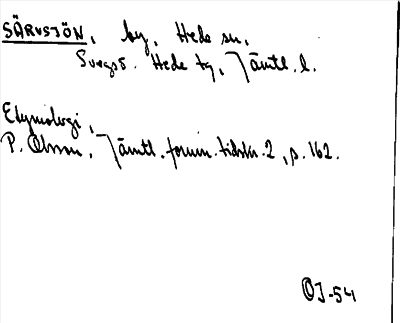 SÄRVSJÖN, by, Hede sn,
Svegs d. Hede tg, Jämtl. l.
Etymologi,
P. Olsson, Jämtl. fornm. tidskr. 2, s. 162.
OJ-54